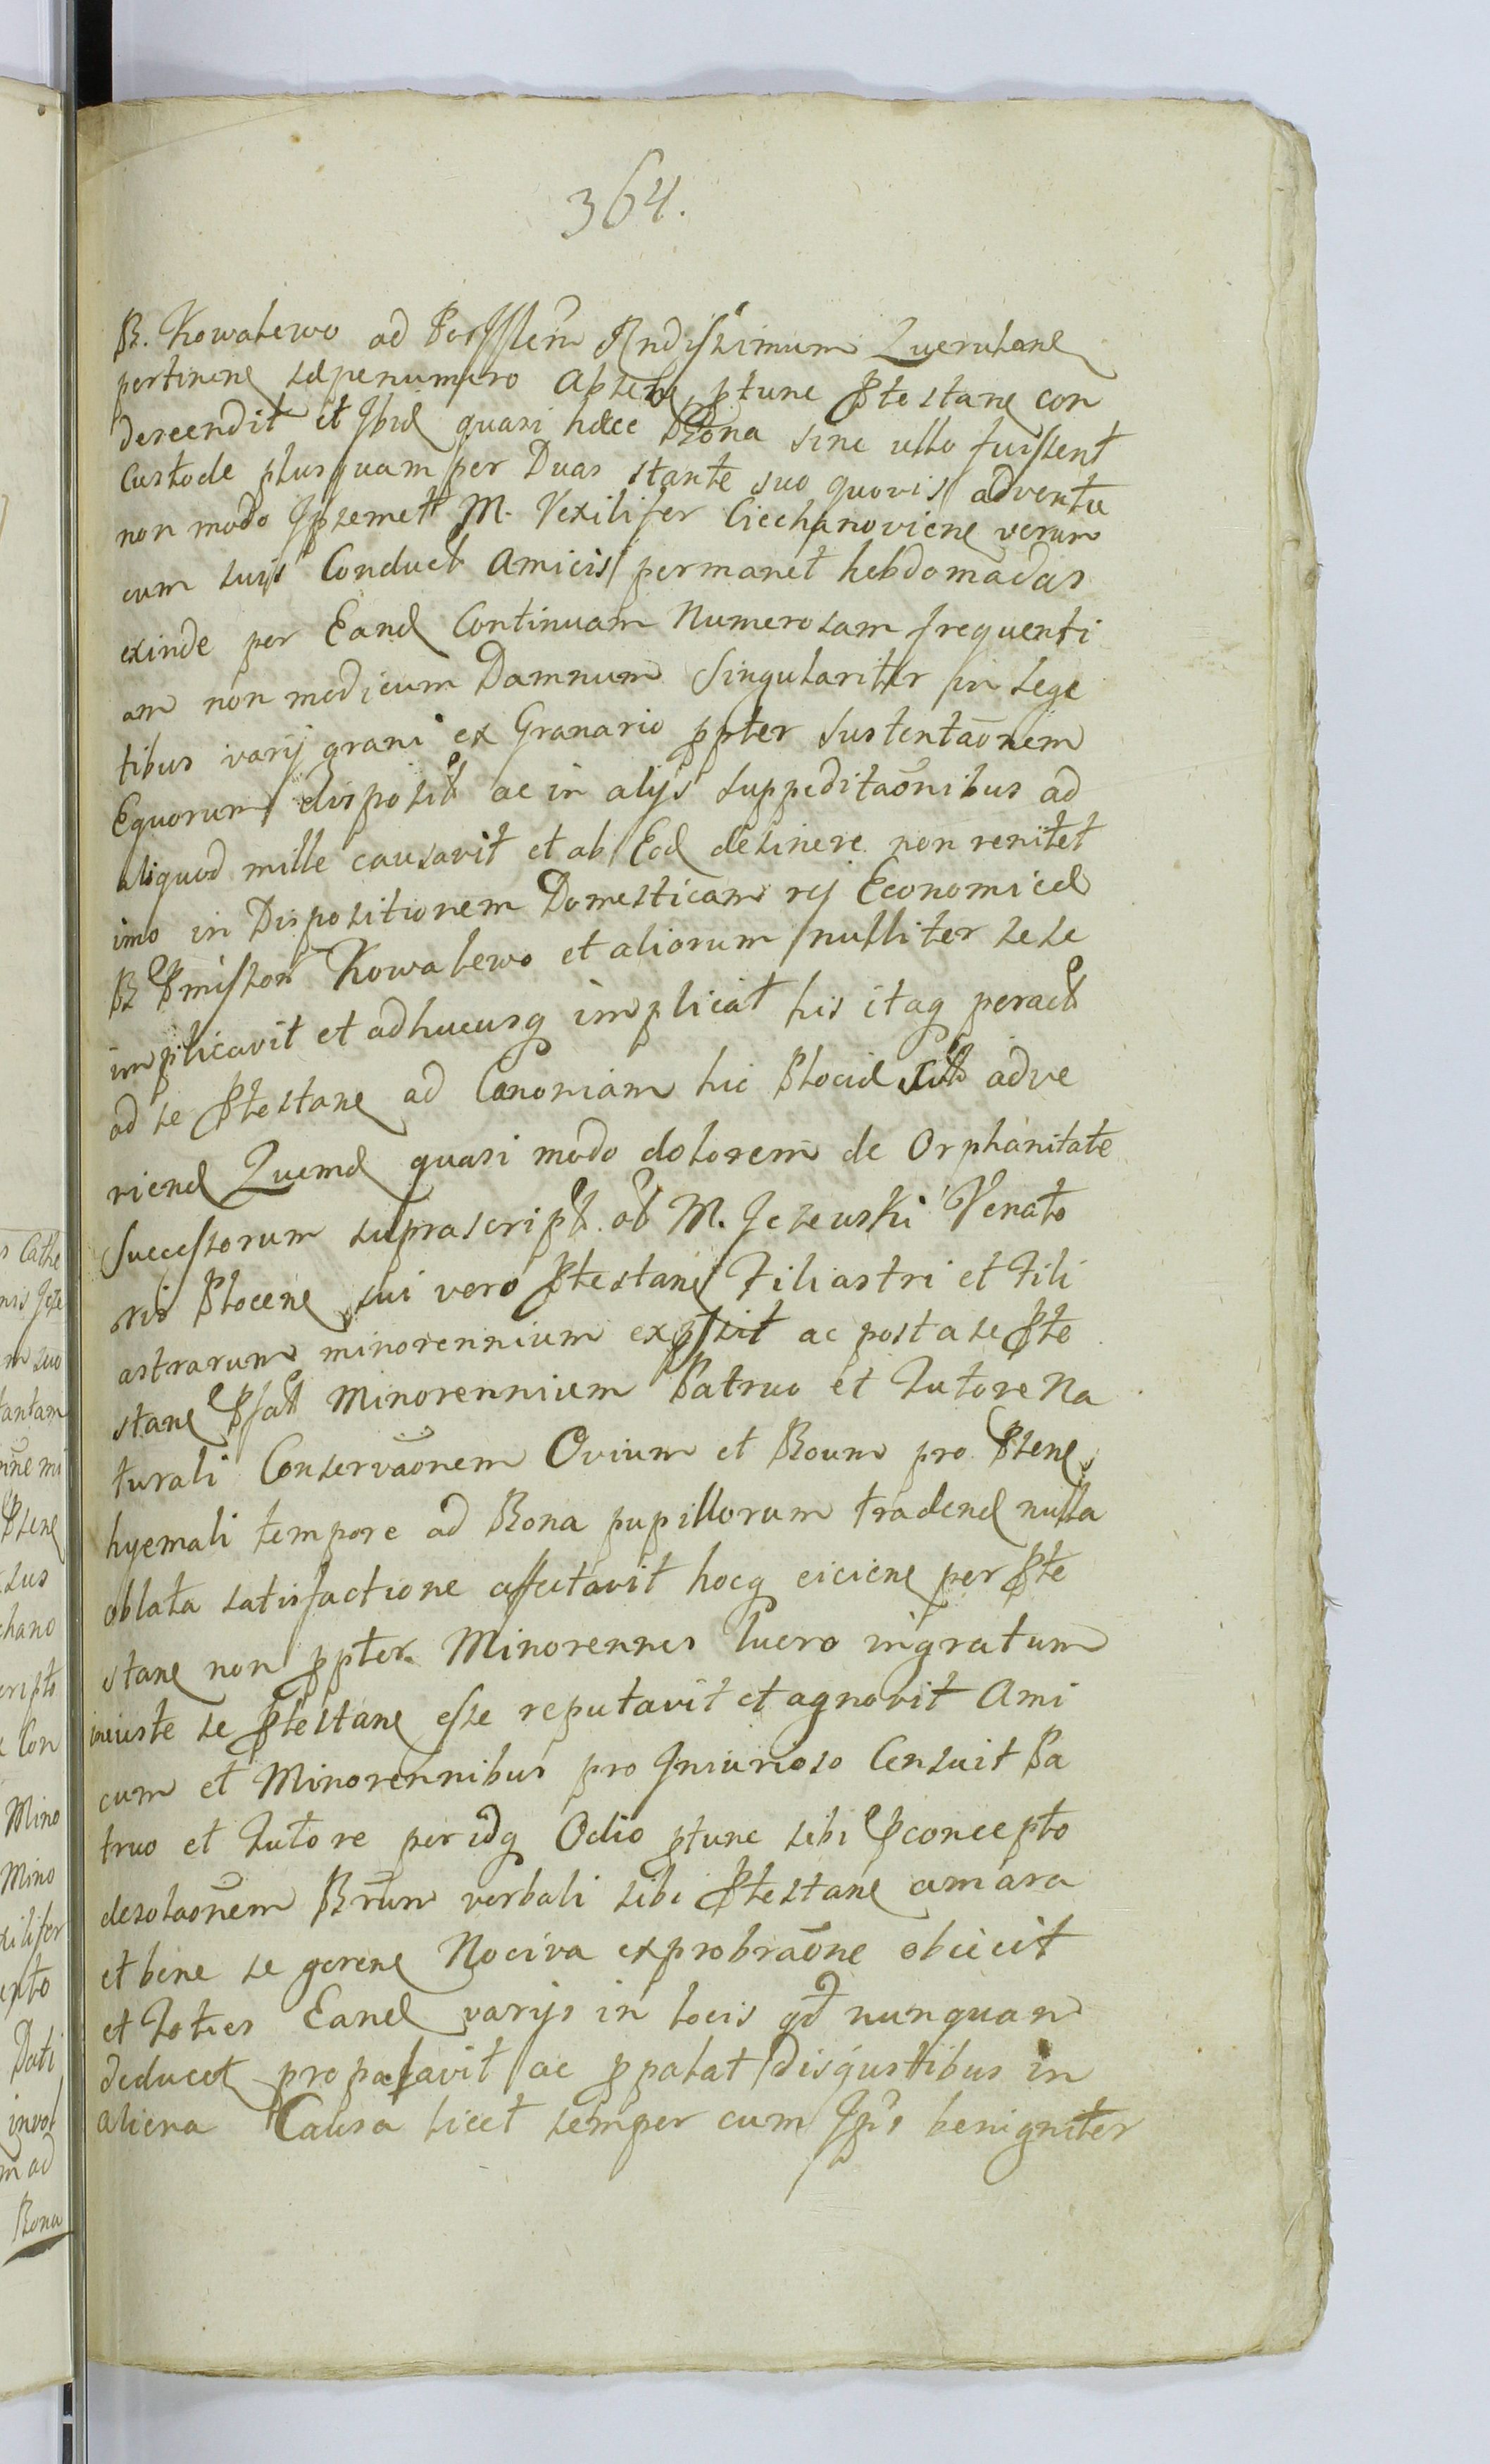 364.
B. Kowalewo ad Perillem Rndissimum Querulane
pertinene saepenumero absene ptunc Ptestane con
descendit et Ibid quasi haec Bona sine ullo fuissent
Custode plusquam per Duas stante suo quovis adventu
non modo Ipsemet M. Vexilifer Ciechanoviene verum
cum suis Conduct Amicis permanet hebdomadas
exinde per Eand Continuam Numerosam frequenti
am non modicum Damnum Singulariter in sege
tibus varij grani ex Granario ppter sustentaonem
Equorum disposit ac in alijs suppeditaonibus ad
aliquod mille causavit et ab Eod desinere non renitet
imo in Dispositionem Domesticam rej Economicae
B Pmissor Kowalewo et aliorum nulliter sese
implicavit et adhucusq implicat his itaq peract
ad se Ptestane ad Canoniam hic Plociae adve
niend Quemd quasi modo dolorem de Orphanitate
Successorum suprascript. ol M. Jezewski Venato
ris Plocene sui vero Ptestane Filiastri et Fili
astrarum minorennium expssit ac post a se Pte
stane Pfat Minorennium Patruo et Tutore Na
turali Conservaonem Ovium et Boum pro Psene
hyemali tempore ad Bona pupillorum tradend nulla
oblata satisfactione affectavit hocq eiciene per Pte
stane non ppter Minorennes lucro ingratum
iniuste se Ptestane esse reputavit et agnovit Ami
cum et Minorennibus pro Iniurioso Censuit Pa
truo et Tutore per idq Odio ptunc sibi Pconcepto
desolaonem Brum verbali sibi Ptestane amara
et bene se gerene Nociva exprobraone obiecit
et Toties Eand varijs in locis qd nunquam
deducet propalavit ac ppalat disgustibus in
aliena Causa licet semper cum Ips benigniter